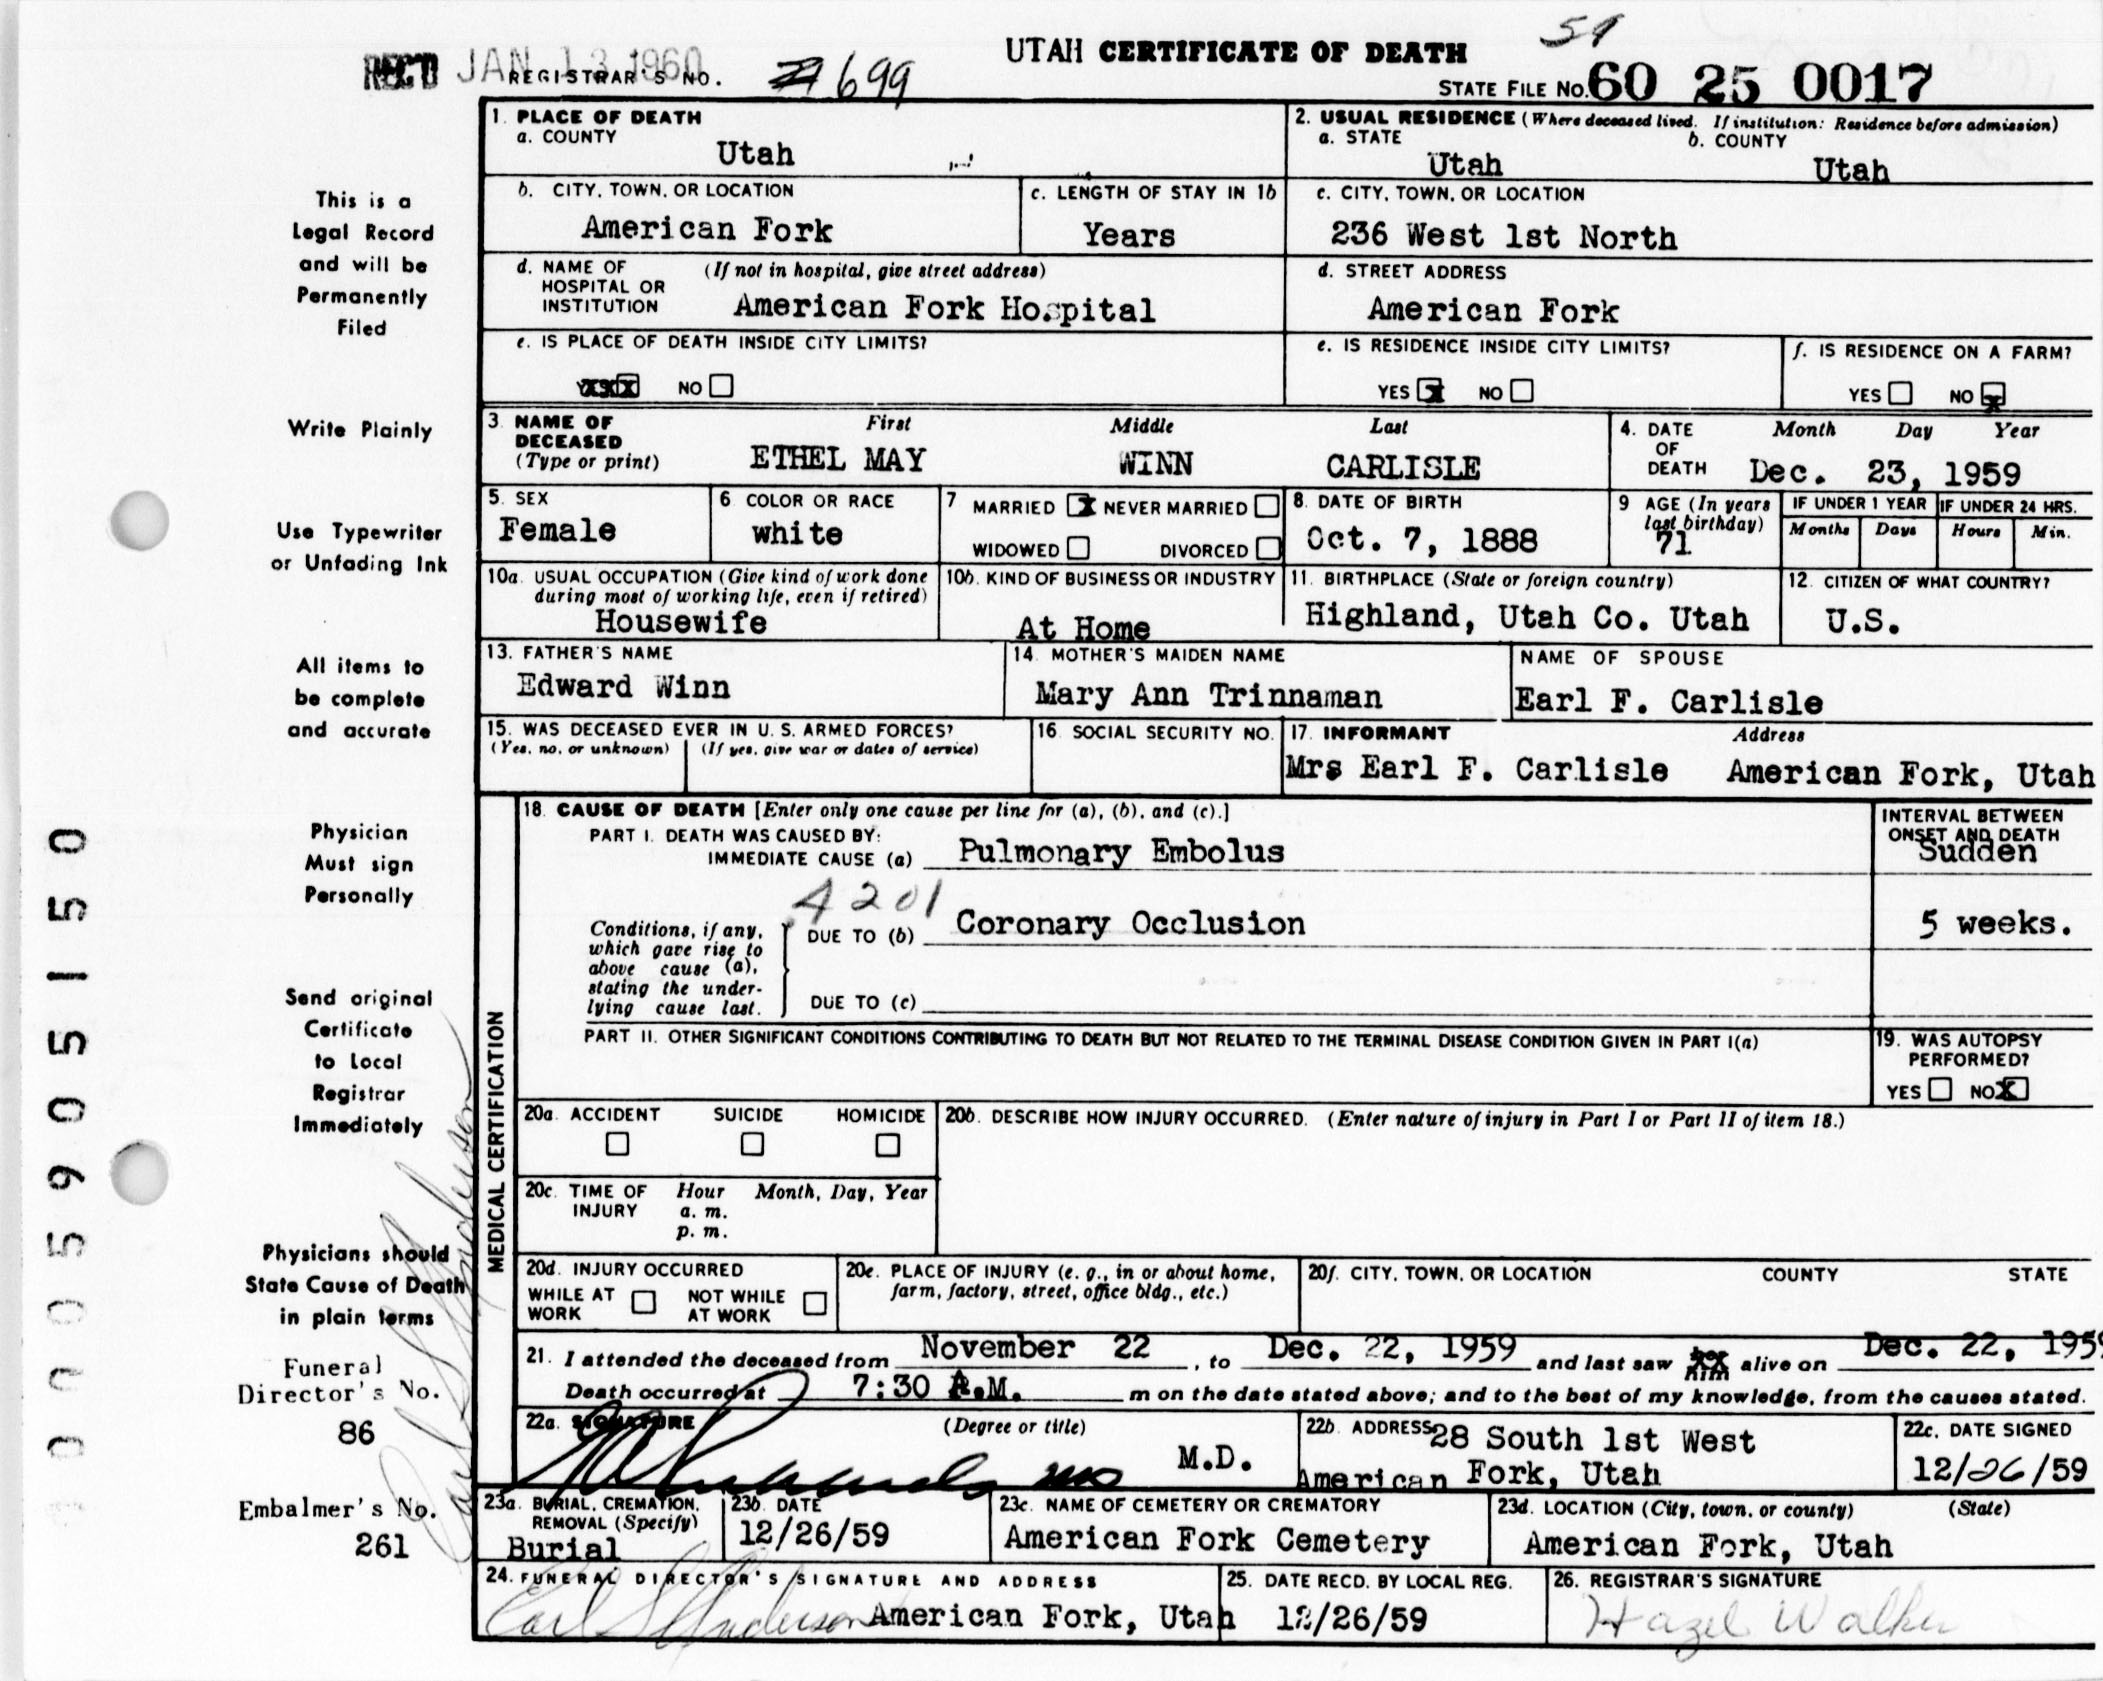 REC'D JAN 13 1960
REGISTRAR'S NO. 699
UTAH CERTIFICATE OF DEATH
59
STATE FILE NO. 60 25 0017
1. PLACE OF DEATH
a. COUNTY
Utah
2. USUAL RESIDENCE (Where deceased lived. If institution: Residence before admission)
a. STATE
Utah
b. COUNTY
Utah
b. CITY, TOWN, OR LOCATION
American Fork
c. LENGTH OF STAY IN 1b
Years
c. CITY, TOWN, OR LOCATION
236 West 1st North
d. NAME OF HOSPITAL OR INSTITUTION
(If not in hospital, give street address)
American Fork Hospital
d. STREET ADDRESS
American Fork
e. IS PLACE OF DEATH INSIDE CITY LIMITS?
NO
e. IS RESIDENCE INSIDE CITY LIMITS?
YES X NO
f. IS RESIDENCE ON A FARM?
YES NO X
3. NAME OF DECEASED
(Type or print)
First Middle Last
ETHEL MAY WINN CARLISLE
4. DATE OF DEATH
Month Day Year
Dec. 23, 1959
5. SEX
Female
6. COLOR OR RACE
white
7. MARRIED X NEVER MARRIED
WIDOWED DIVORCED
8. DATE OF BIRTH
Oct. 7, 1888
9. AGE (In years last birthday)
71
IF UNDER 1 YEAR
Months Days
IF UNDER 24 HRS.
Hours Min.
10a. USUAL OCCUPATION (Give kind of work done during most of working life, even if retired)
Housewife
10b. KIND OF BUSINESS OR INDUSTRY
At Home
11. BIRTHPLACE (State or foreign country)
Highland, Utah Co. Utah
12. CITIZEN OF WHAT COUNTRY?
U.S.
13. FATHER'S NAME
Edward Winn
14. MOTHER'S MAIDEN NAME
Mary Ann Trinnaman
NAME OF SPOUSE
Earl F. Carlisle
15. WAS DECEASED EVER IN U. S. ARMED FORCES?
(Yes, no, or unknown) (If yes, give war or dates of service)
16. SOCIAL SECURITY NO.
17. INFORMANT Address
Mrs Earl F. Carlisle American Fork, Utah
MEDICAL CERTIFICATION
18. CAUSE OF DEATH [Enter only one cause per line for (a), (b), and (c).]
PART I. DEATH WAS CAUSED BY:
IMMEDIATE CAUSE (a) Pulmonary Embolus
INTERVAL BETWEEN ONSET AND DEATH
Sudden
4201
Conditions, if any,
which gave rise to
above cause (a),
stating the under-
lying cause last.
DUE TO (b) Coronary Occlusion
5 weeks.
DUE TO (c)
PART II. OTHER SIGNIFICANT CONDITIONS CONTRIBUTING TO DEATH BUT NOT RELATED TO THE TERMINAL DISEASE CONDITION GIVEN IN PART I(a)
19. WAS AUTOPSY PERFORMED?
YES NO X
20a. ACCIDENT SUICIDE HOMICIDE
20b. DESCRIBE HOW INJURY OCCURRED. (Enter nature of injury in Part I or Part II of item 18.)
20c. TIME OF INJURY
Hour Month, Day, Year
a. m.
p. m.
20d. INJURY OCCURRED
WHILE AT WORK
NOT WHILE AT WORK
20e. PLACE OF INJURY (e. g., in or about home, farm, factory, street, office bldg., etc.)
20f. CITY, TOWN, OR LOCATION COUNTY STATE
21. I attended the deceased from November 22, to Dec. 22, 1959 and last saw him alive on Dec. 22, 1959
Death occurred at 7:30 A.M. m on the date stated above; and to the best of my knowledge, from the causes stated.
22a. SIGNATURE
(Degree or title)
M.D.
22b. ADDRESS
28 South 1st West
American Fork, Utah
22c. DATE SIGNED
12/26/59
23a. BURIAL, CREMATION, REMOVAL (Specify)
Burial
23b. DATE
12/26/59
23c. NAME OF CEMETERY OR CREMATORY
American Fork Cemetery
23d. LOCATION (City, town, or county) (State)
American Fork, Utah
24. FUNERAL DIRECTOR'S SIGNATURE AND ADDRESS
Carl S Anderson American Fork, Utah
25. DATE RECD. BY LOCAL REG.
12/26/59
26. REGISTRAR'S SIGNATURE
Hazel Walker
This is a
Legal Record
and will be
Permanently
Filed
Write Plainly
Use Typewriter
or Unfading Ink
All items to
be complete
and accurate
Physician
Must sign
Personally
Send original
Certificate
to Local
Registrar
Immediately
Physicians should
State Cause of Death
in plain terms
Funeral
Director's No.
86
Embalmer's No.
261
Carl S Anderson
0005905150